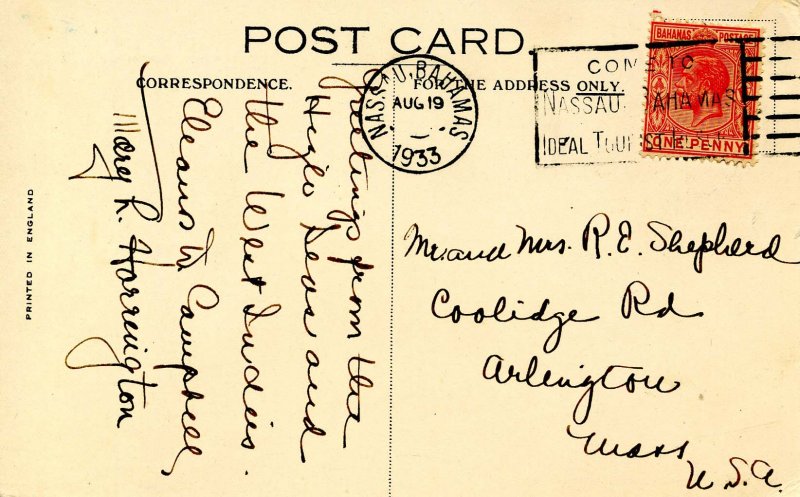 POST CARD.
CORRESPONDENCE.
FOR THE ADDRESS ONLY.
NASSAU, BAHAMAS
AUG 19
1933
COME TO
NASSAU-BAHAMAS
IDEAL TOURIST
BAHAMAS POSTAGE
ONE PENNY
Greetings from the
High Seas and
the West Indies.
Eleanor W. Campbell,
Mary L. Harrington
Mr. and Mrs. R. E. Shepherd
Coolidge Rd
Arlington
Mass
U.S.A.
PRINTED IN ENGLAND